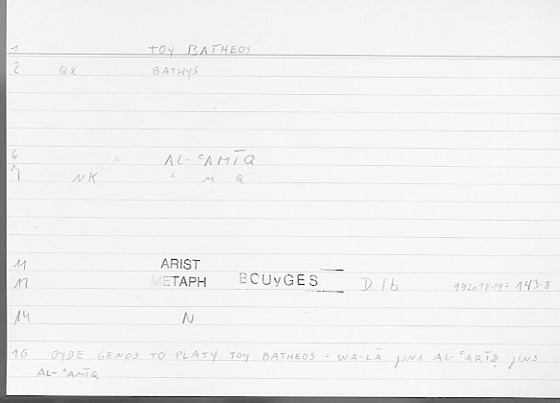 1 TOY BATHEOS
2 QX BATHYS
6 AL-ʿAMĪQ
7 NK ʿ M Q
11 ARIST
12 METAPH BOUyGES D 1b 992a18-19 = 143.8
14 N
16 OYDE GENOS TO PLATY TOY BATHEOS = WA-LĀ ǦINS AL-ʿARĪḌ ǦINS
AL-ʿAMĪQ